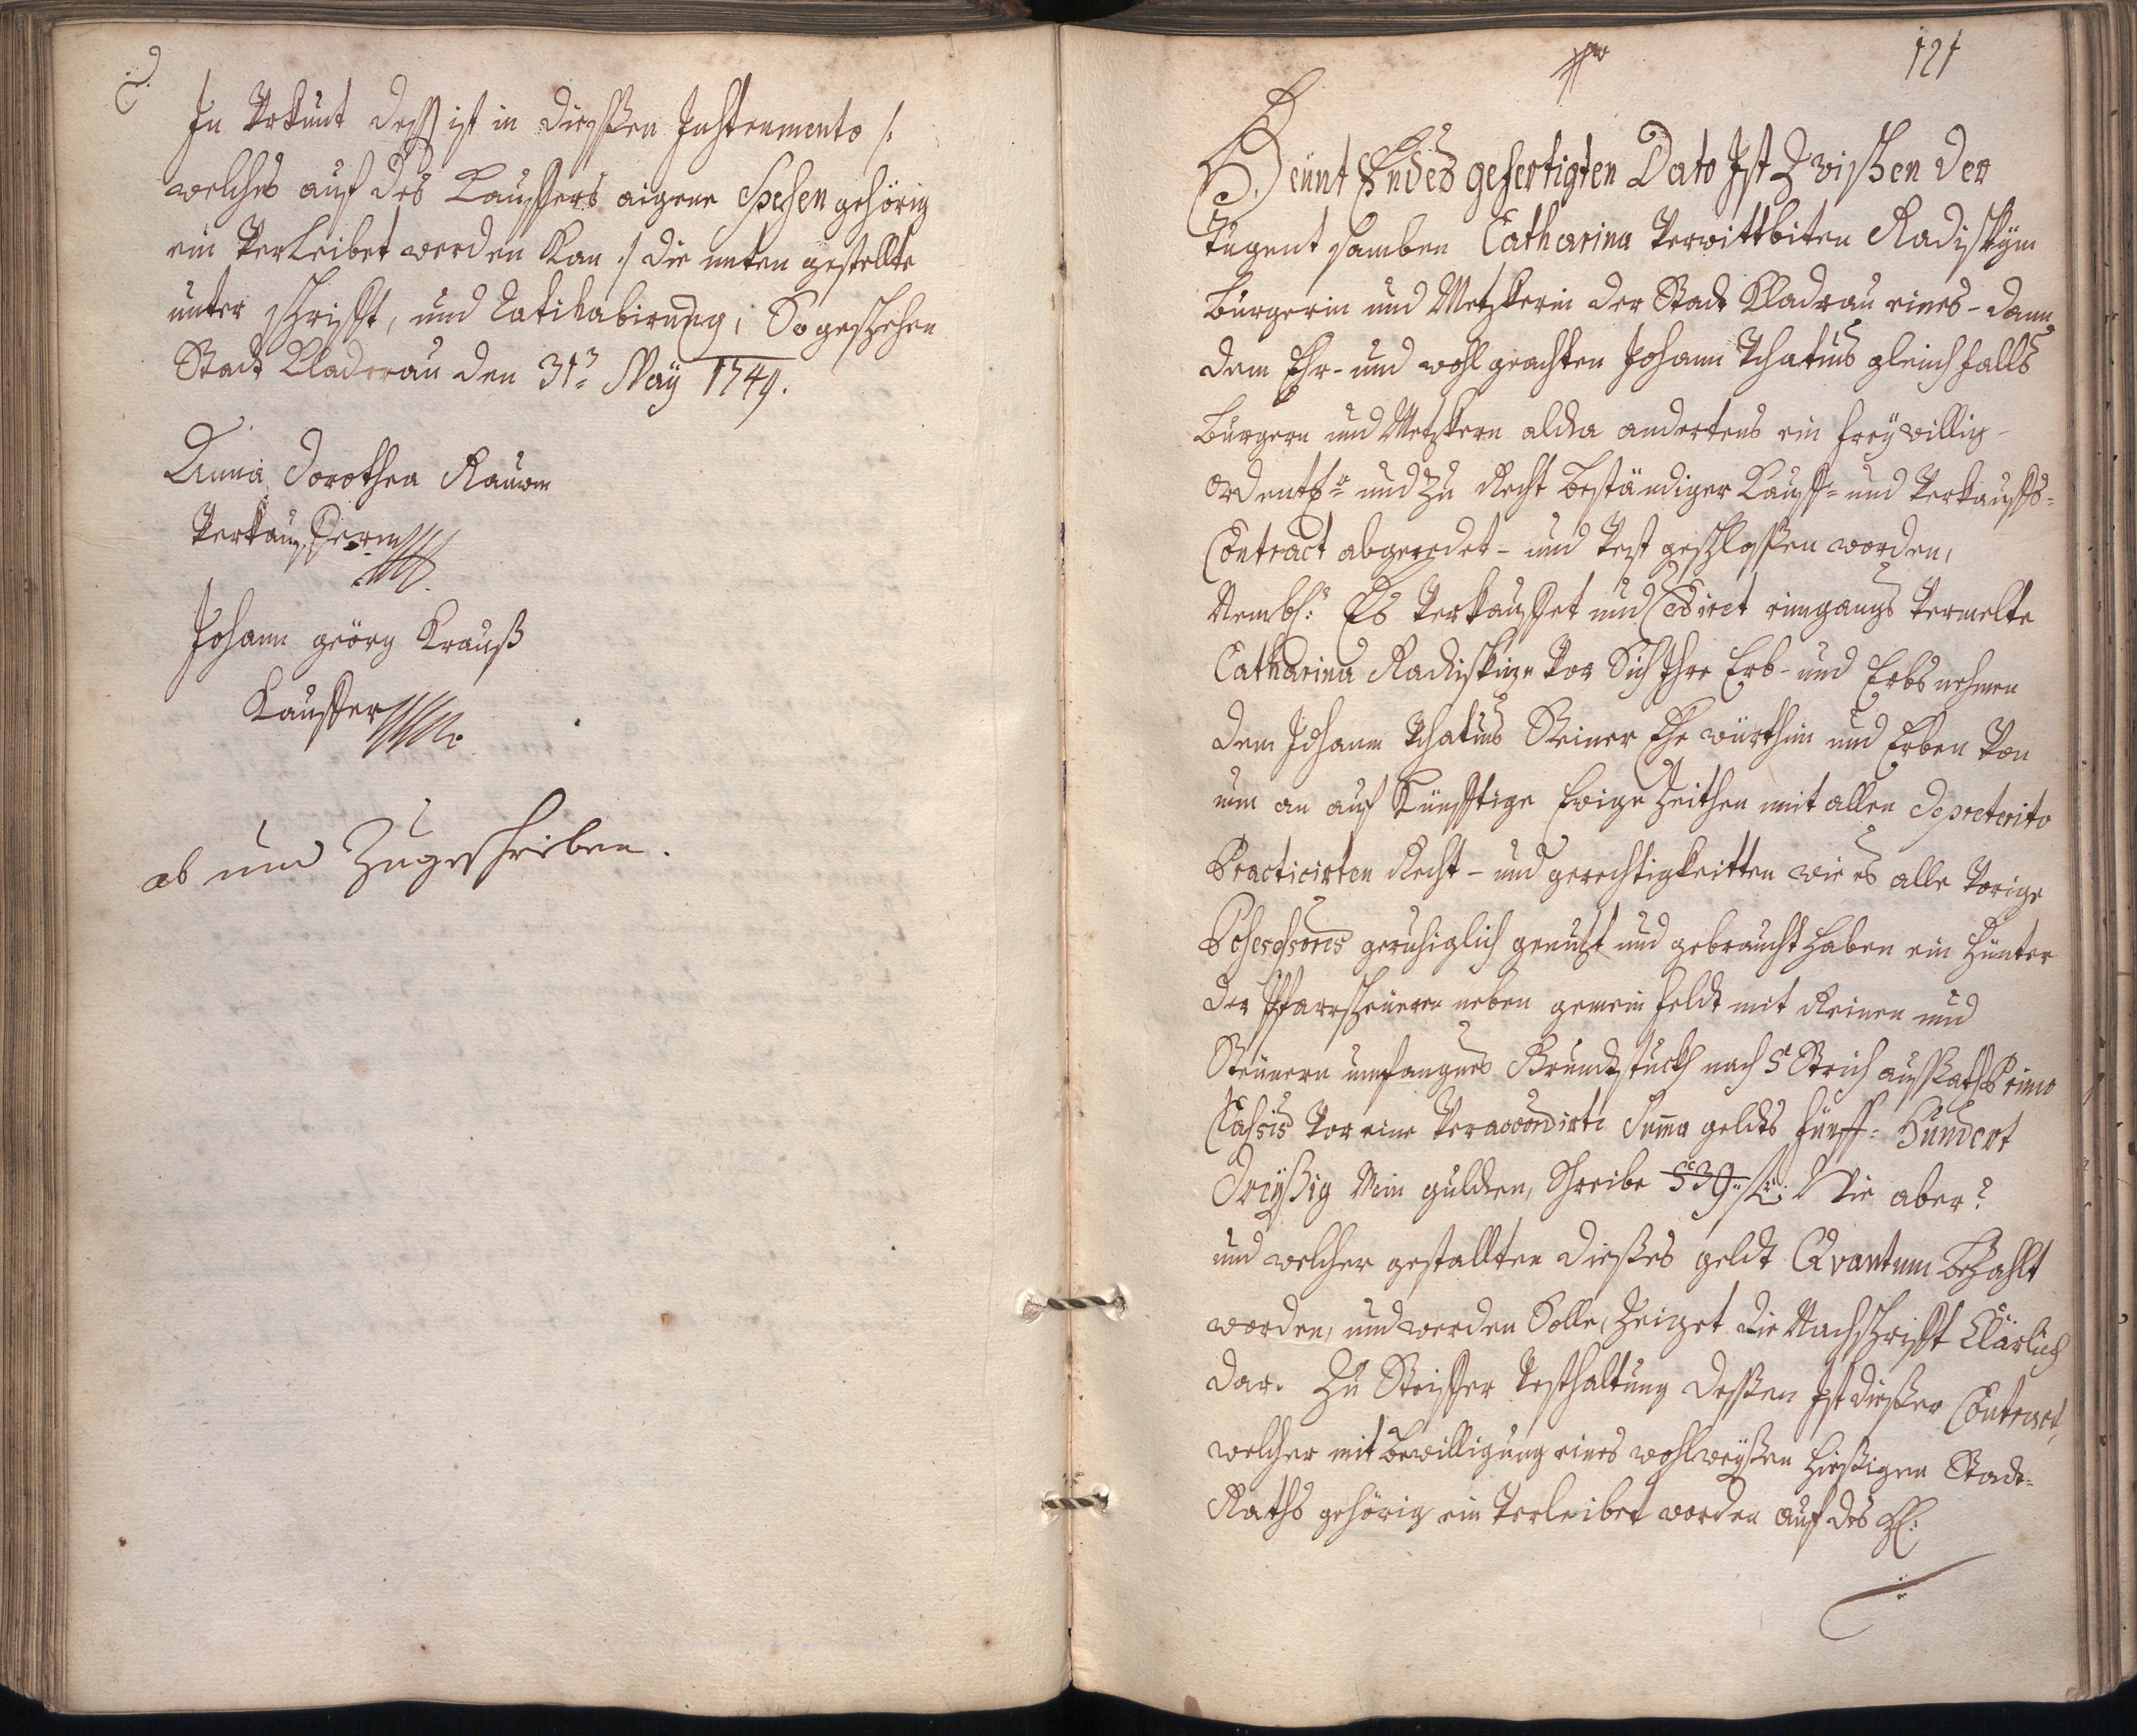 In Urkunt dess ist in diessen Instrumento /:
welches auf des Kauffers aigene Spesen gehörig
ein Verleibet werden kan :/ die unten gestellte
unter schrifft, und Ratihabirung, So geschehen
Stadt Kladrau den 31. May 1749.
Anna Dorothea
Verkaufferin
Johann georg Krauß
Kauffer
ab und Zugeschrieben.
121
Heunt Endes gefertigten Dato Ist Zwischen der
tugent samben Catharina Verwittbiten
Burgerin und Metzkerin der Stadt Kladrau eines - dann
dem Ehr- und wohl geachten Johann gleichfalls
Burgern und Metzkern alda andertens ein freywillig-
ordentl: und zu Recht beständiger Kauff- und Verkauffs-
Contract abgeredet - und Vest geschlossen worden,
Nembl: Es Verkauffet und Cediret eingangs Vermelte
Catharina Vor Sich Ihre Erb- und Erbsnehmen
dem Johann Seiner Ehe würthin und Erben Von
nun an auf Künfftige Ewige Zeithen mit allen de preterito
Practicirten Recht - und gerechtigkeitten wie es alle Vorige
Possessores geruhiglich genutzt und gebraucht haben ein hünter
der Pfarrscheueren neben gemein feldt mit Reinen und
Steinern umfangnes Grundtstuckh nach 5 Strich aussaath Primo
Classis Vor eine Veraccordirte Suma geldts fünff- Hundert
Dreyßig Nein gulden, Schreibe 539 f: Wie aber?
und welcher gestallten dieses geldt Qvantum bezahlt
worden, und werden Solle, zeiget die Nachschrifft klärlich
dar. Zu Steiffer Vesthaltung dessen Ist dießer Contract,
welcher mit bewilligung eines wohlweysen hießigen Stadt-
Raths gehörig ein Verleibet worden auf des